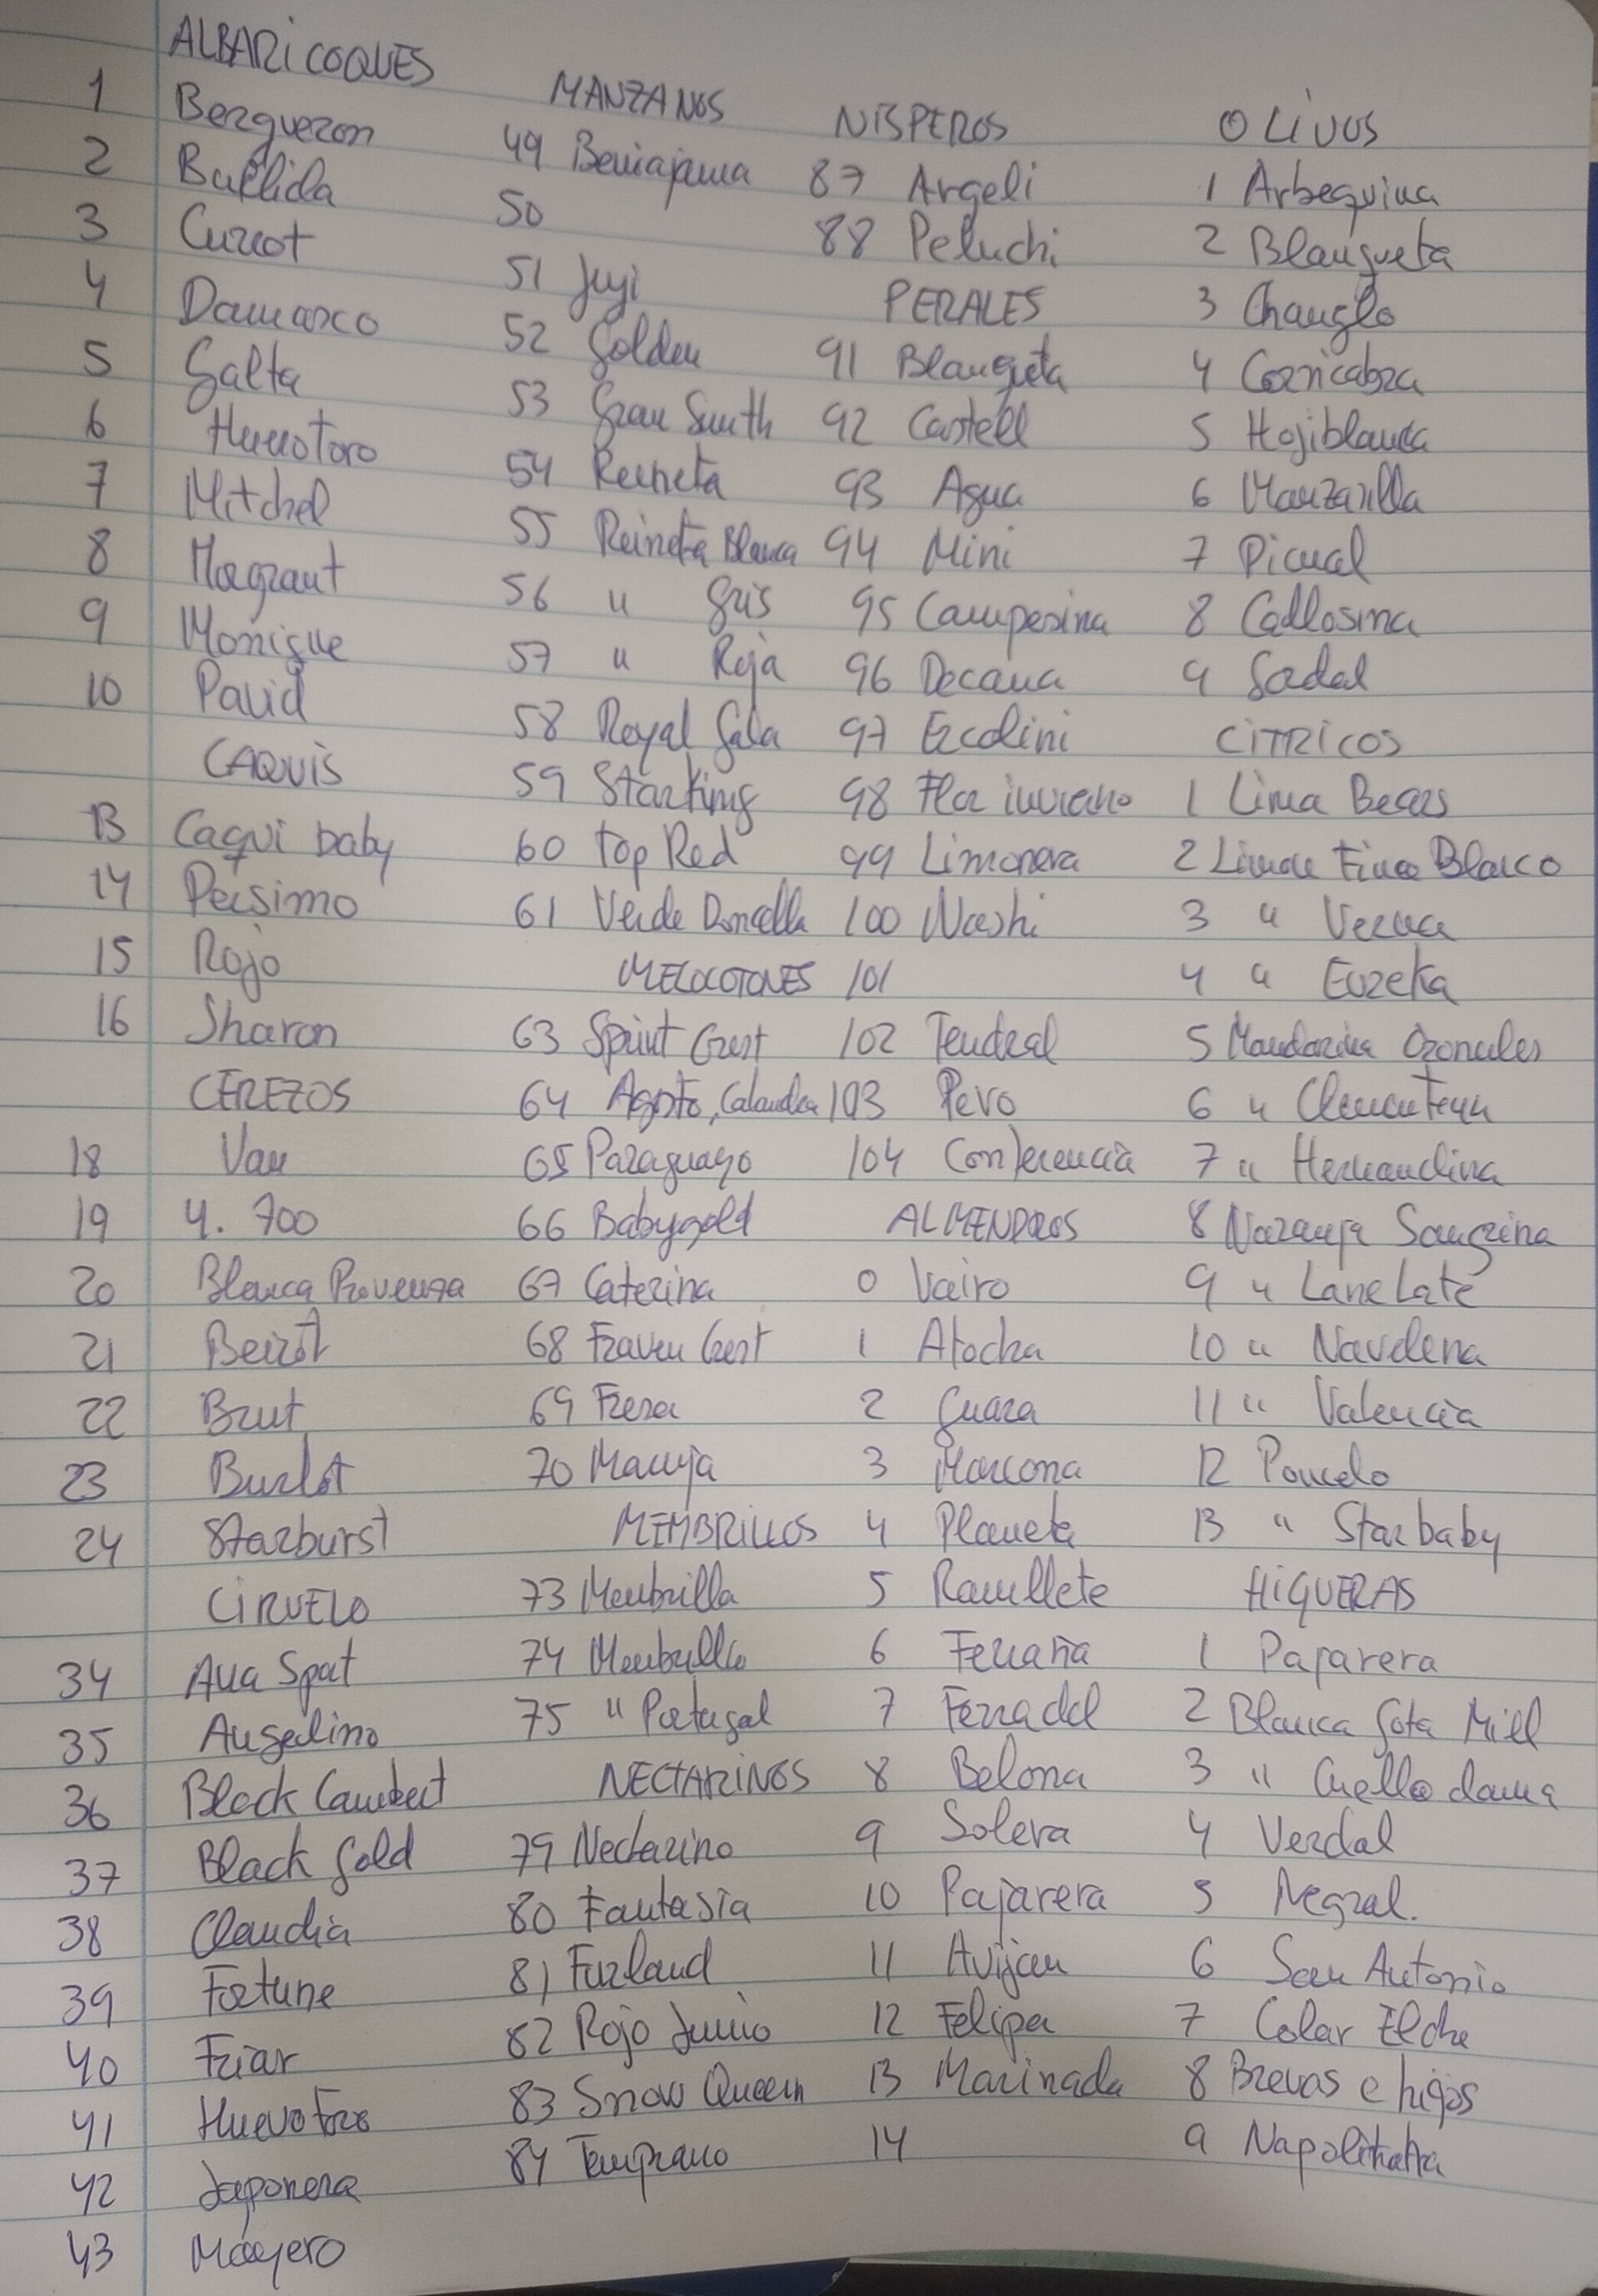 ALBARICOQUES
1 Bergueron
2 Bullida
3 Currot
4 Damasco
5 Galta
6 Huevotoro
7 Mitchel
8 Mogranut
9 Monique
10 Pavid
CAQUIS
13 Caqui baby
14 Persimo
15 Rojo
16 Sharon
CEREZOS
18 Van
19 4. 700
20 Blanca Provenza
21
22 Brut
23 Burlat
24 Starburst
CIRUELO
34 Ana Spat
35 Angelino
36 Black
37 Black Gold
38 Claudia
39 Fortune
40 Friar
41 Huevotoro
42 Japonesa
43 Mayero
MANZANOS
49 Beniajama
50
51 Fuji
52 Golden
53 Gran Smith
54 Reineta
55 Reineta Blanca
56 " Gris
57 " Roja
58 Royal Gala
59 Starking
60 Top Red
61 Verde Doncella
MELOCOTONES
63 Sprint Crest
64 Agosto, Calandra
65 Paraguayo
66 Babygold
67 Caterina
68 Fraven Crest
69 Fresa
70 Maruja
MEMBRILLOS
73 Membrilla
74 Membrillo
75 " Portugal
NECTARINOS
79 Nectarino
80 Fantasia
81 Furland
82 Rojo Junio
83 Snow Queen
84 Temprano
NISPEROS
87 Argeli
88 Peluchi
PERALES
91 Blanqueta
92 Castell
93 Agua
94 Mini
95 Campesina
96 Decana
97 Ercolini
98 Flor invierno
99 Limonera
100 Nashi
101
102 Tendral
103 Pero
104 Conferencia
ALMENDROS
0 Vairo
1 Atocha
2 Guara
3 Marcona
4 Planeta
5 Ramillete
6
7 Ferradel
8 Belona
9 Soleva
10 Pajarera
11 Avijan
12 Felipa
13 Marinada
14
OLIVOS
1 Arbequina
2 Blanqueta
3 Changlo
4 Cornicabra
5 Hojiblanca
6 Manzanilla
7 Picual
8 Callosina
9
CITRICOS
1 Lima Bears
2 Limon Fino Blanco
3 " Verna
4 " Eureka
5 Mandarina Oronules
6 "
7 " Hernandina
8 Naranja Sangrina
9 " Lane Late
10 " Navelena
11 " Valencia
12 Pomelo
13 " Starbaby
HIGUERAS
1 Pajarera
2 Blanca Gota Miel
3 " Cuello dama
4 Verdal
5 Negral.
6 San Antonio
7 Colar Elche
8 Brevas e higos
9 Napolitana